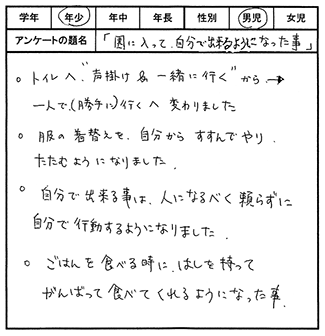 学年 年少 年中 年長 性別 男児 女児
アンケートの題名 「園に入って、自分で出来るようになった事」
○ トイレへ"声掛け&一緒に行く"から→
一人で(勝手に)行くへ 変わりました
○ 服の着替えを、自分から すすんでやり、
たたむようになりました。
○ 自分で出来る事は、人になるべく頼らずに
自分で行動するようになりました。
○ ごはんを食べる時に、はしを持って
がんばって食べてくれるようになった事。